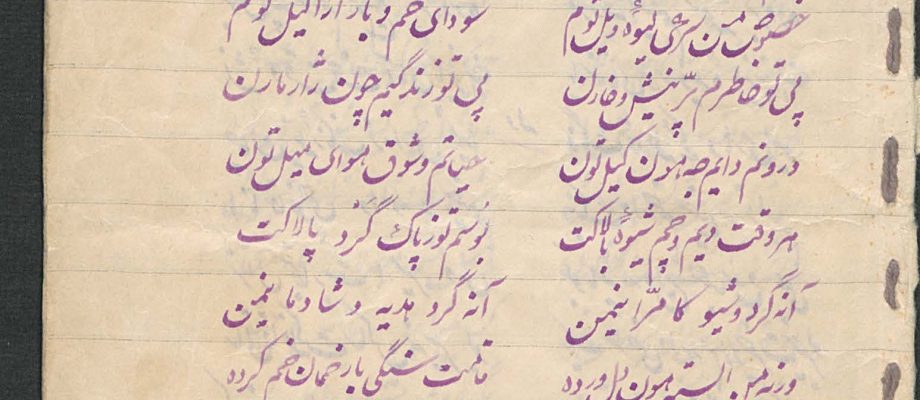 خصوص من سرخی لیوهٔ ویل توم سودای خم و بار آرا گیل توم
پی تو خاطرم پڕ نیش و خارن پی تو زندگیم چون ژار مارن
درونم دایم جه هون گیل تون حیاتم و شوق هوای میل تون
هر وقت دیم و چم شیوهٔ بالاکت بوسم توز پاک گرد پالاکت
آنه گرد و شیو کامرا نیمن آنه گرد هدیه و شادما نیمن
ورنه من هون دل ورده قامت سنگی بار خمان خم کرده